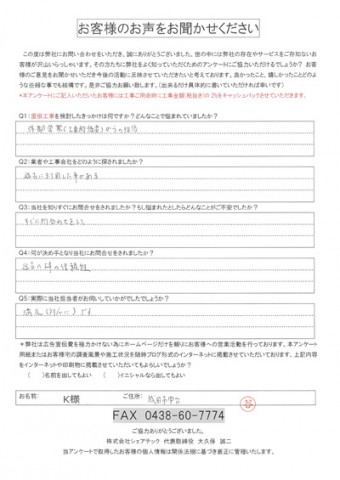 お客様のお声をお聞かせください
この度は弊社にお問い合わせをいただき、誠にありがとうございました。世の中には弊社の存在やサービスをご存知ないお
客様が沢山いらっしゃいます。その方たちに弊社をよく知っていただくためのアンケートにご協力いただけるでしょうか? お客
様のご意見をお聞かせいただき今後の活動に反映させていただきたいと考えております。良かったこと、嬉しかったことどのよ
うな些細な事でも結構です。是非ご協力お願い致します。(出来るだけ具体的に書いていただければ幸いです)
*本アンケートにご記入いただいたお客様には工事ご用命時に工事金額(税抜き)の 2%をキャッシュバックさせていただきます。
Q1:塗装工事を検討したきっかけは何ですか? どんなことで悩まれていましたか?
Q2:業者や工事会社をどのように探されましたか?
Q3:当社を知りすぐにお問合せをされましたか? もし悩まれたとしたらどんなことがご不安でしたか?
すぐに問合わせをした
Q4:何が決め手となり当社にお問合せをされましたか?
Q5:実際に当社担当者がお伺いしていかがでしたでしょうか?
*弊社は広告宣伝費を極力かけない為にホームページだけを頼りにお客様への営業活動を行っております。本アンケート
用紙またはお客様宅の調査風景や施工状況を随時ブログ形式のインターネットに掲載させていただいております。上記内容
をインターネットや印刷物に掲載させていただいてもよろしいでしょうか?
( )名前を出してもよい ( )イニシャルなら出してもよい
お名前: K様 ご住所:
FAX 0438-60-7774
ご協力ありがとうございました。
株式会社シェアテック 代表取締役 大久保 誠二
当アンケートで取得したお客様の個人情報は関係法規に基づき厳正に管理いたします。